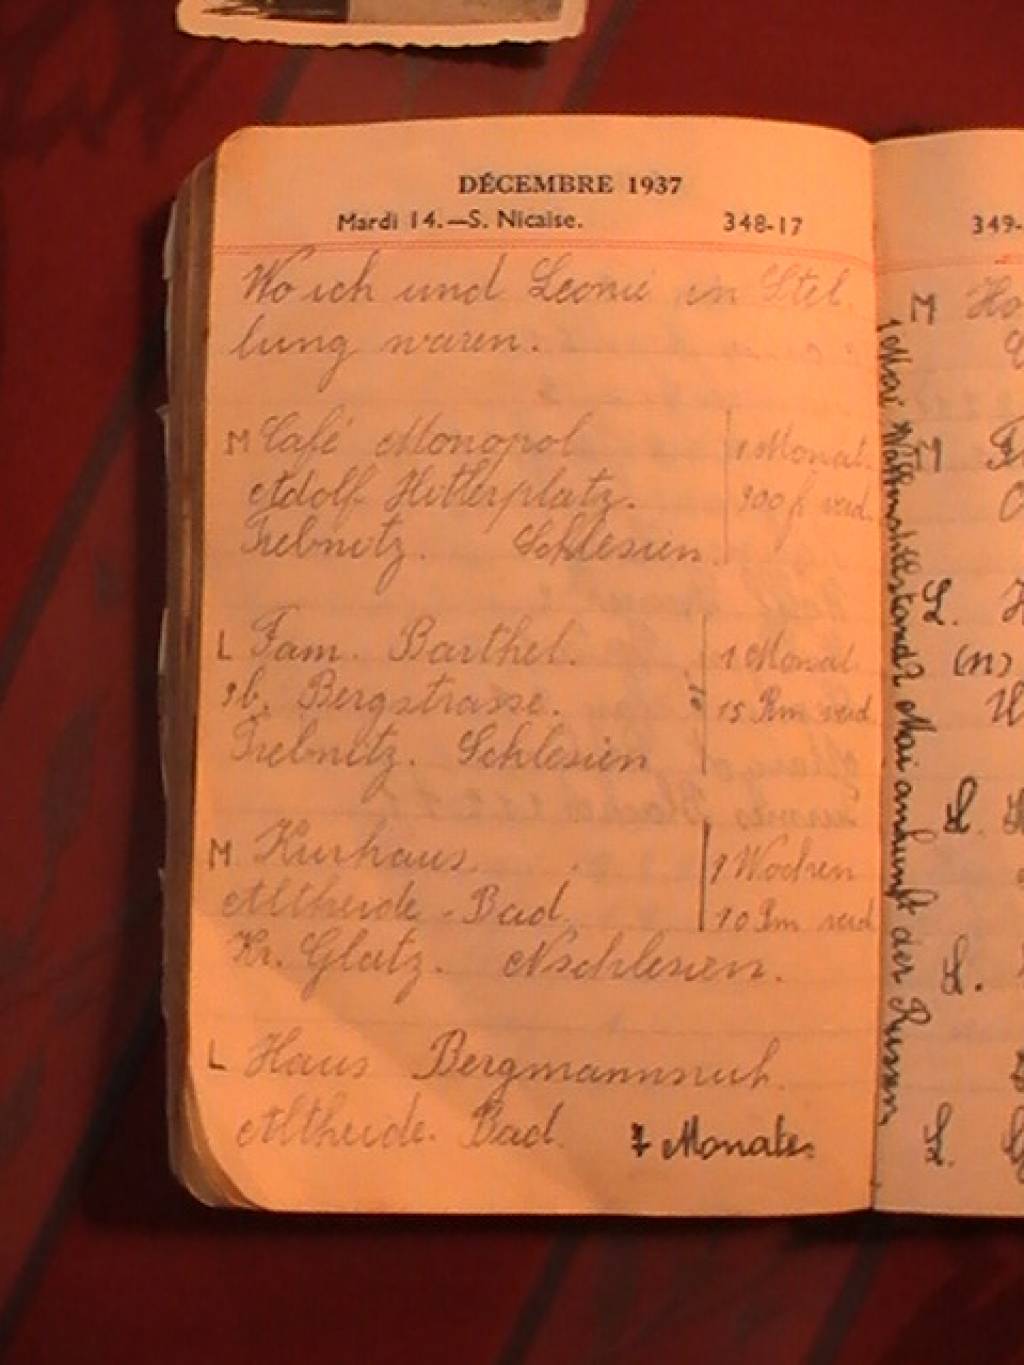 DÉCEMBRE 1937
Mardi 14.—S. Nicaise. 348-17
Wo ich und Leonie in Stel
lung waren.
M Café Monopol 1 Monat.
Adolf Hitlerplatz. verd.
Trebnitz. Schlesien.
L Fam. Barthel. 1 Monat
Bergstrasse. 15 Rm verd.
Trebnitz. Schlesien
M Kurhaus. 1 Wochen
Altheide-Bad. 10 Rm verd.
Kr. Glatz. NSchlesien.
L Haus Bergmannsruh.
Altheide-Bad. 7 Monate.
349-
1 Mai Waffenstillstand 2 Mai ankunft der Russen
M Ho
M
L.
(n)
L.
L.
L.